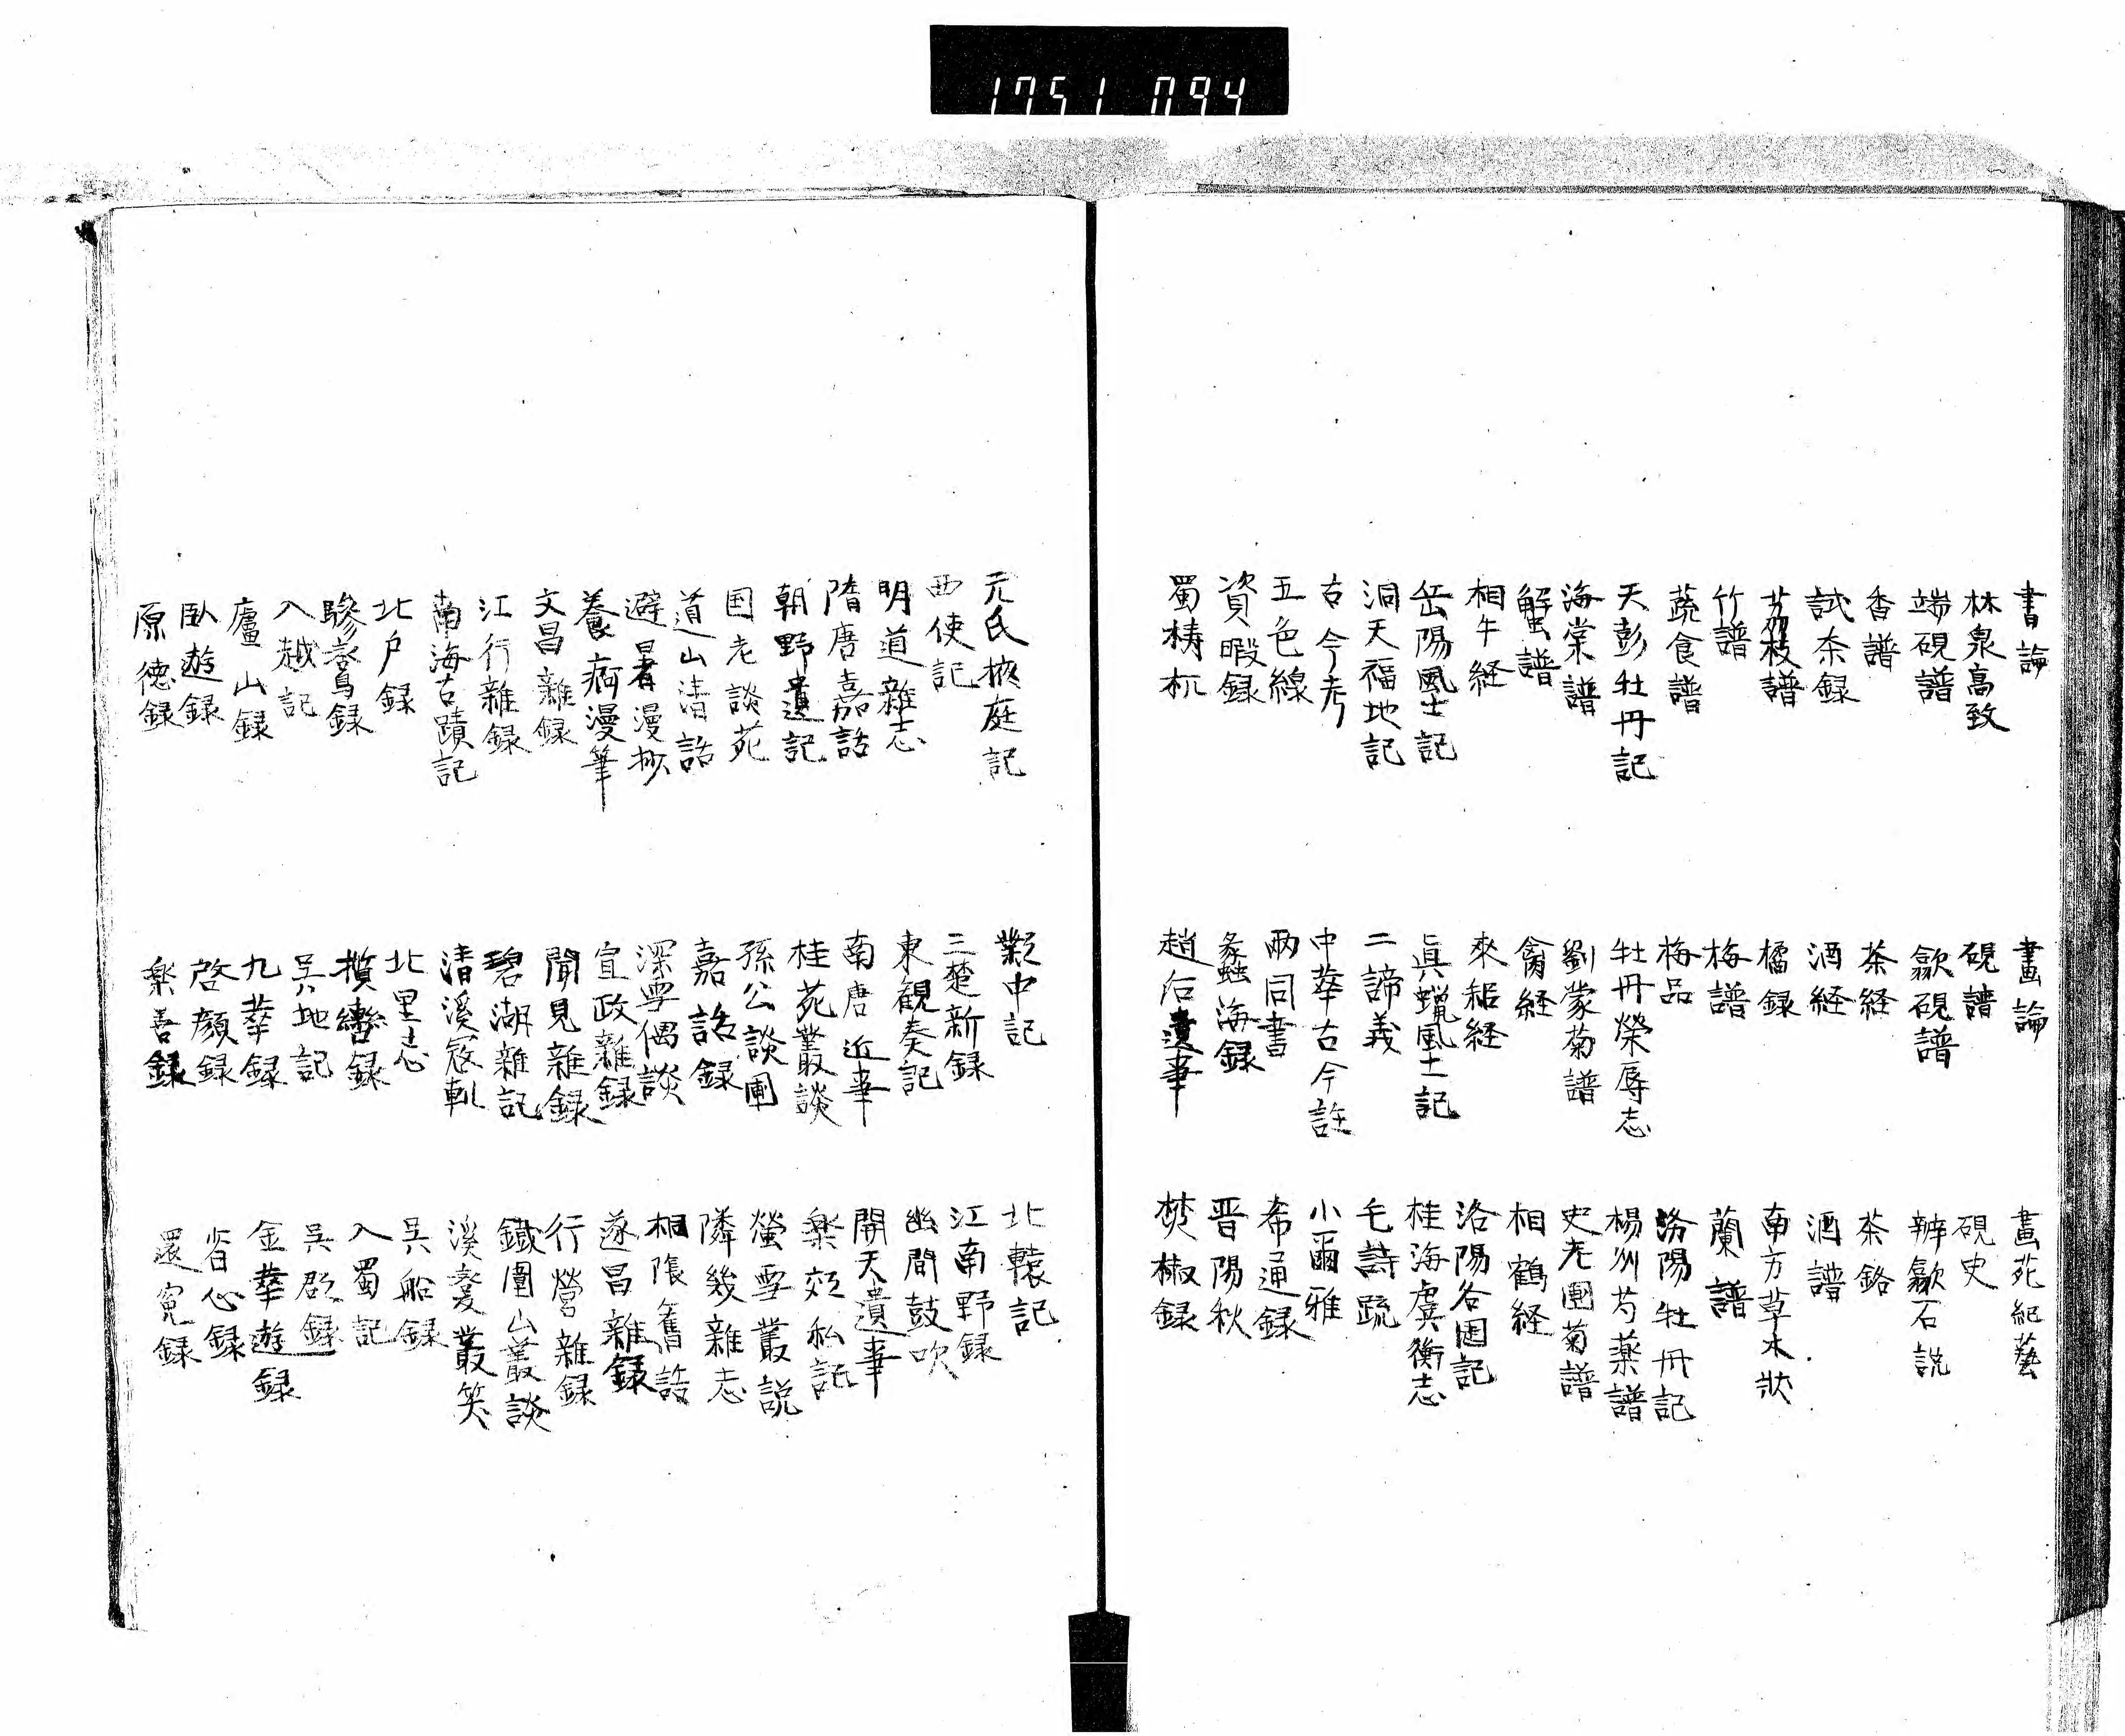 1751 094
書論 畫論 畫苑紀藝
林泉高致 硯譜 硯史
端硯譜 歙硯譜 辨歙石説
香譜 茶経 茶録
試茶録 酒経 酒譜
茘枝譜 橘録 南方草木状
竹譜 梅譜 蘭譜
蔬食譜 梅品 洛陽牡丹記
天彭牡丹記 牡丹榮辱志 楊州芍薬譜
海棠譜 劉蒙菊譜 史老圃菊譜
蟹譜 禽経 相鶴経
相牛経 耒耜経 洛陽名園記
岳陽風土記 真蠟風土記 桂海虞衡志
洞天福地記 二諦義 毛詩疏
古今考 中華古今註 小爾雅
五色線 兩同書 希通録
資暇録 蠡海録 晋陽秋
蜀梼杌 趙后遺事 焚椒録
元氏掖庭記 鄴中記 北轅記
西使記 三楚新録 江南野録
明道雜志 東観奏記 幽間鼓吹
隋唐嘉話 南唐近事 開天遺事
朝野遺記 桂苑叢談 楽郊私記
国老談苑 孫公談圃 螢雪叢説
道山清話 嘉話録 隣幾雜志
避暑漫抄 深雪偶談 桐陰舊話
養痾漫筆 宣政雜録 遂昌雜録
文昌雜録 聞見雜録 行營雜録
江行雜録 碧湖雜記 鐵圍山叢談
南海古蹟記 清溪寇軌 溪蠻叢笑
北户録 北里志 吴船録
驂鸞録 攬轡録 入蜀記
入越記 吴地記 吴郡録
廬山録 九華録 金華遊録
臥遊録 啓顔録 省心録
厚徳録 楽善録 還冤録